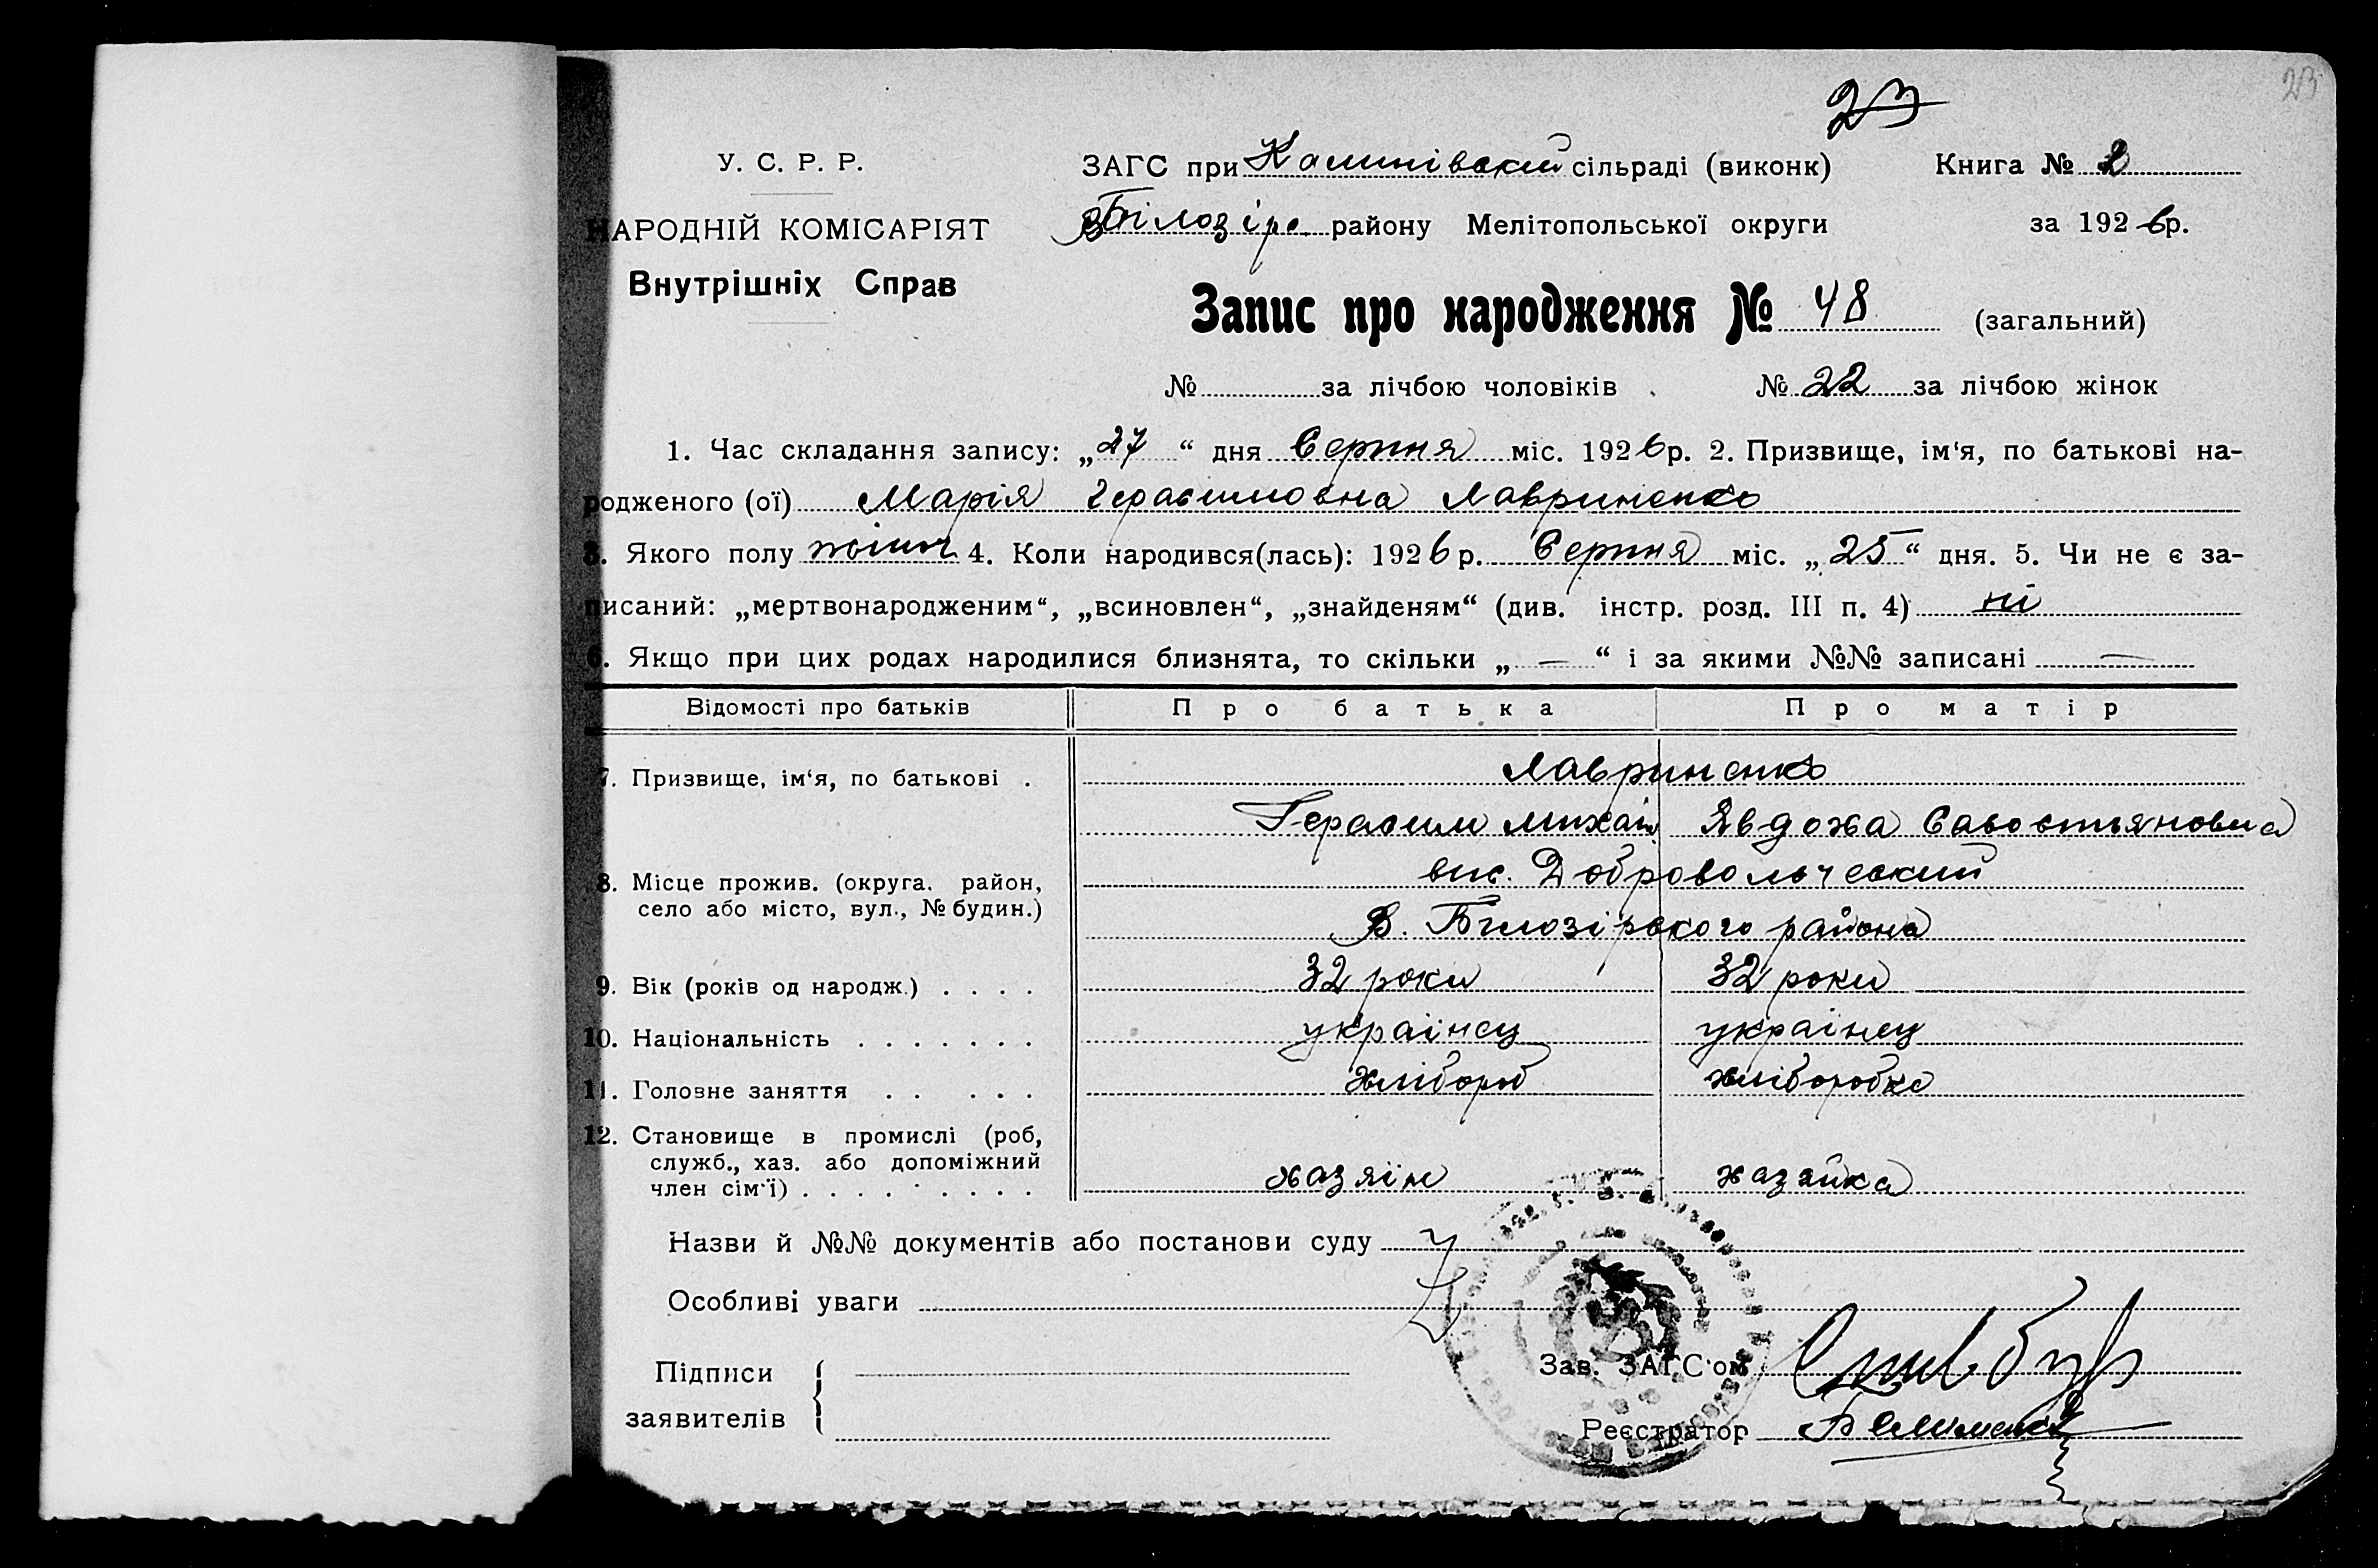 23
23
У. С. Р. Р.
ЗАГС при сільраді (виконк) Книга № 2
НАРОДНІЙ КОМІСАРІЯТ
В Білозірс. району Мелітопольської округи за 1926р.
Внутрішніх Справ
Запис про народження № 48 (загальний)
№ за лічбою чоловіків . № 22 за лічбою жінок
1. Час складання запису: „27“ дня Серпня міс. 1926р. 2. Призвище, ім‘я, по батькові на-
родженого (ої) Марія Герасимовна Лавриненко
3. Якого полу жіноч 4. Коли народився(лась): 1926р. Серпня міс. „25“ дня. 5. Чи не є за-
писаний: „мертвонародженим“, „всиновлен“, „знайденям“ (див. інстр. розд. III п. 4) ні
6. Якщо при цих родах народилися близнята, то скільки „—“ і за якими №№ записані —
Відомості про батьків Про батька Про матір
7. Призвище, ім‘я, по батькові . Лавриненко
Герасим Михай Явдоха Савостьяновна
8. Місце прожив. (округа, район, вис. Добровольческий
село або місто, вул., № будин.) В. Білозірського района
9. Вік (років од народж.) . . . . 32 роки 32 роки
10. Національність . . . . . . . українец українец
11. Головне заняття . . . . . хлібороб хліборобка
12. Становище в промислі (роб,
служб., хаз. або допоміжний
член сім‘ї) . . . . . . . . . хазяїн хазяйка
Назви й №№ документів або постанови суду
Особливі уваги
Підписи
заявителів
Зав. ЗАГС‘ом
Реєстратор